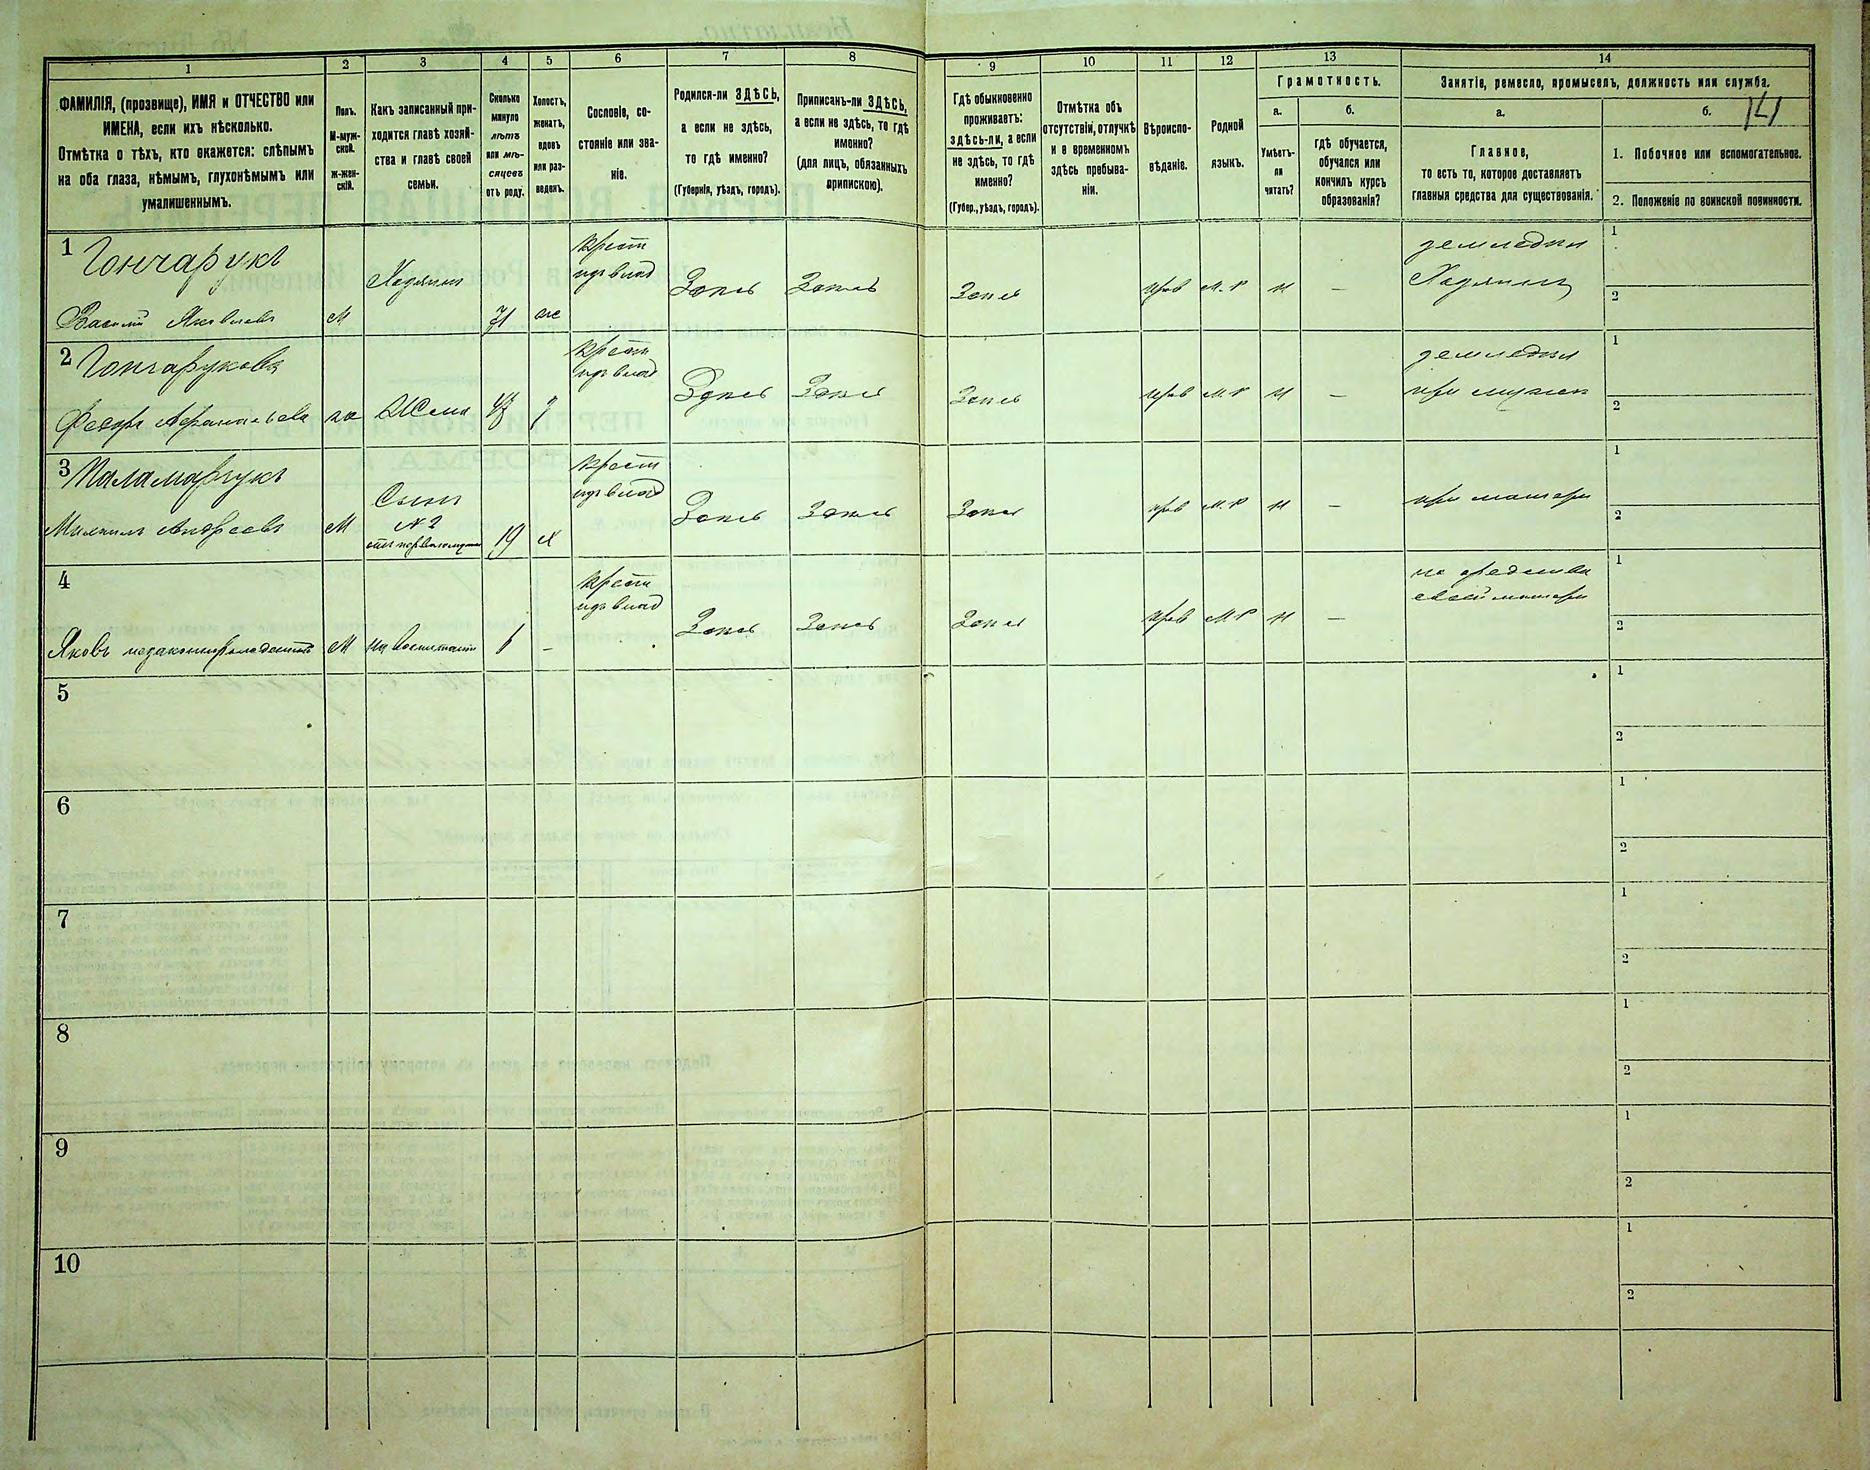 1
2
3
4
5
6
7
8
9
10
11
12
13
14
ФАМИЛІЯ, (прозвище), ИМЯ и ОТЧЕСТВО или
ИМЕНА, если ихъ нѣсколько.
Отмѣтка о тѣхъ, кто окажется: слѣпымъ
на оба глаза, нѣмымъ, глухонѣмымъ или
умалишеннымъ.
Полъ.
М-муж-
ской.
ж-жен-
скій.
Какъ записанный при-
ходится главѣ хозяй-
ства и главѣ своей
семьи.
Сколько
минуло
лѣтъ
или мѣ-
сяцевъ
отъ роду.
Холостъ,
женатъ,
вдовъ
или раз-
веденъ.
Сословіе, со-
стояніе или зва-
ніе.
Родился-ли ЗДѢСЬ,
а если не здѣсь,
то гдѣ именно?
(Губернія, уѣздъ, городъ).
Приписанъ-ли ЗДѢСЬ,
а если не здѣсь, то гдѣ
именно?
(для лицъ, обязанныхъ
припискою).
Гдѣ обыкновенно
проживаетъ:
здѣсь-ли, а если
не здѣсь, то гдѣ
именно?
(Губер., уѣздъ, городъ).
Отмѣтка объ
отсутствіи, отлучкѣ
и о временномъ
здѣсь пребыва-
ніи.
Вѣроиспо-
вѣданіе.
Родной
языкъ.
Грамотность.
а.
б.
Умѣетъ-
ли
читать?
гдѣ обучается,
обучался или
кончилъ курсъ
образованія?
Занятіе, ремесло, промыселъ, должность или служба.
а.
б.
141
Главное,
то есть то, которое доставляетъ
главныя средства для существованія.
1. Побочное или вспомогательное.
2. Положеніе по воинской повинности.
1 Гончарукъ
Василій Яковлевъ
М
Хозяинъ
71
же
крест
изъ влад
Здѣсь
Здѣсь
Здѣсь
прав
М. Р
н
—
земледѣл
Хозяинъ
1
2
2 Гончарукова
жена
крест
изъ влад
Здѣсь
Здѣсь
Здѣсь
прав
М. Р
н
—
земледѣл
при мужѣ
1
2
3 Паламарчукъ
Андреевъ
М
Сынъ
№ 2
19
х
крест
изъ влад
Здѣсь
Здѣсь
Здѣсь
прав
М. Р
н
—
при матери
1
2
4
Яковъ незаконнорожденный
М
на воспитаніи
1
—
крест
изъ влад
Здѣсь
Здѣсь
Здѣсь
прав
М Р
н
—
на средства
своей матери
1
2
5
1
2
6
1
2
7
1
2
8
1
2
9
1
2
10
1
2